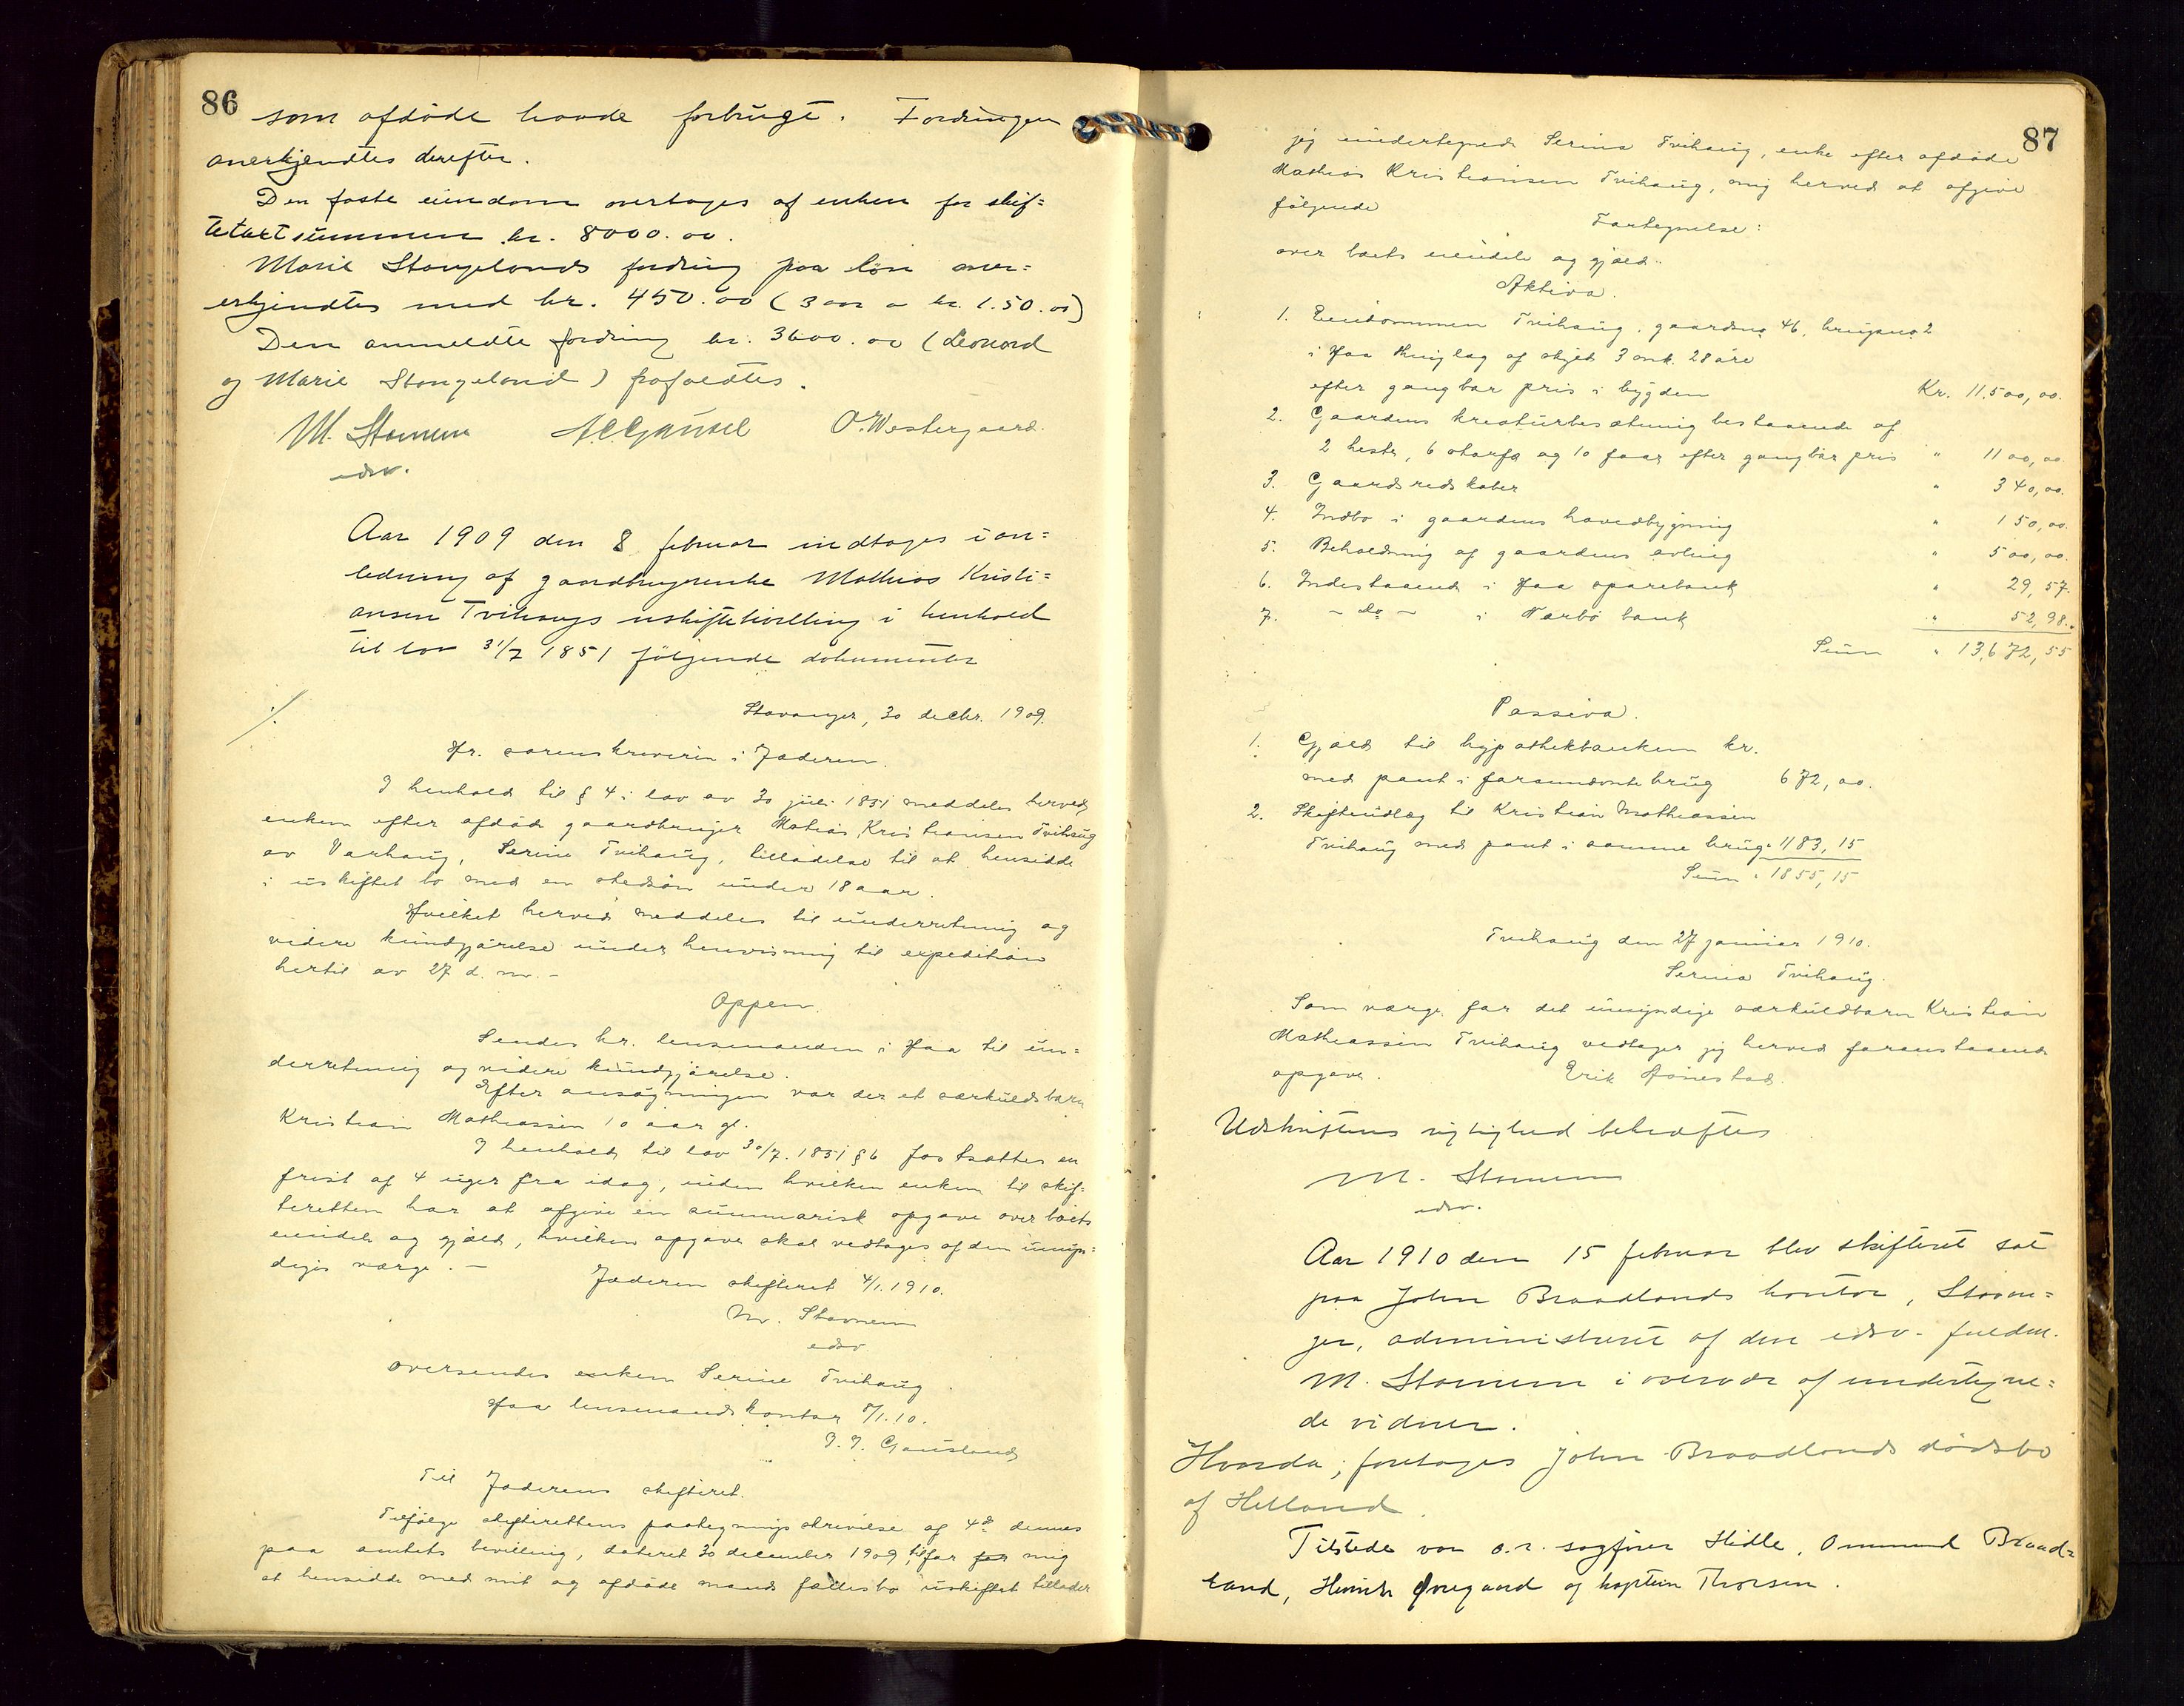 86
som afdøde havde forbrugt. Fordringen
anerkjendtes derefter.
Den faste eiendom overtages af enken for skif=
tetaxtsummen kr. 8000.00.
Marie Stangelands fordring paa løn aner=
erkjendtes med kr. 450.00 (3 aar a kr. 1.50.00)
Den anmeldte fordring kr. 3600.00 (Leonard
og Marie Stangeland) frafaldtes.
M. Stornem A.C. Gausel O. Westergaard.
edsv.
Aar 1909 den 8 februar indtages i an=
ledning af gaardbrugerenke Mathias Kristi=
ansen Tvihaugs uskiftebevilling i henhold
til lov 31/7 1851 følgende dokumenter
Stavanger, 30 decbr. 1909.
Hr. sorenskriveren i Jæderen.
I henhold til § 4 i lov av 30 juli 1851 meddeles herved
enken efter afdøde gaardbruger Matias Kristiansen Tvihaug
av Varhaug, Serine Tvihaug, tilladelse til at hensidde
i uskiftet bo med en stedsøn under 18 aar.
Hvilket herved meddeles til underretning og
videre kundgjørelse under henvisning til expedition
hertil av 27 d. m. –
Oppen.
Sendes hr. lensmanden i Haa til un=
derretning og videre kundgjørelse.
Efter ansøgningen var der et særkuldsbarn
Kristian Mathiassen 10 aar gl.
I henhold til lov 30/7. 1851 § 6 fastsættes en
frist af 4 uger fra idag, inden hvilken enken til skif=
teretten har at afgive en summarisk opgave over boets
eiendele og gjæld, hvilken opgave skal vedtages af den umyn=
diges værge. –
Jæderen skifteret 4/1. 1910.
M. Stornem
edsv
Oversendes enken Serine Tvihaug
Haa lensmandskontor 7/1.10.
J. J. Gausland
Til Jæderens skifteret.
Tilfølge skifterettens paategningsskrivelse af 4de dennes
paa amtets bevilling, dateret 30 december 1909, til for mig
at hensidde med mit og afdøde mands fællesbo uskiftet tillader
87
jeg undertegnede Serina Tvihaug, enke efter afdøde
Mathias Kristiansen Tvihaug, mig herved at afgive
følgende
Fortegnelse:
over boets eiendele og gjæld.
Aktiva.
1. Eiendommen Tvihaug, gaardsno. 46, brugsno. 2
i Haa thinglag af skyld 3 mk. 28 øre
efter gangbar pris i bygden Kr. 11.500,00.
2. Gaardens kreaturbesætning bestaaende af
2 heste, 6 storfæ og 10 faar efter gangbar pris " 1100,00.
3. Gaardsredskaber " 340,00.
4. Indbo i gaardens hovedbygning " 150,00.
5. Beholdning af gaardens avling " 500,00.
6. Indestaaende i Haa sparebank " 29,57.
7. – do – i Nærbø bank " 52,98.
Sum " 13,672,55
Passiva.
1. Gjæld til hypothekbanken kr.
med pant i forannævnte brug 672,00.
2. Skifteudlæg til Kristian Mathiassen
Tvihaug med pant i samme brug " 1183,15
Sum " 1855,15
Tvihaug den 27 januar 1910.
Serina Tvihaug.
Som værge for det umyndige særkuldbarn Kristian
Mathiassen Tvihaug vedtager jeg herved foranstaaende
opgave. Erik Aanestad.
Udskriftens rigtighed bekræftes
M. Stornem
edsv.
Aar 1910 den 15 februar blev skifteret sat
paa John Braadlands kontor, Stavan=
ger, administreret af den edsv. fuldm.
M. Stornem i overvær af undertegne=
de vidner.
Hvorda; foretages John Braadlands dødsbo
af Helland.
Tilstede var o.r. sagfører Hidle, Ommund Braad=
land, Henrik Ovregaard og kaptein Thorsen.